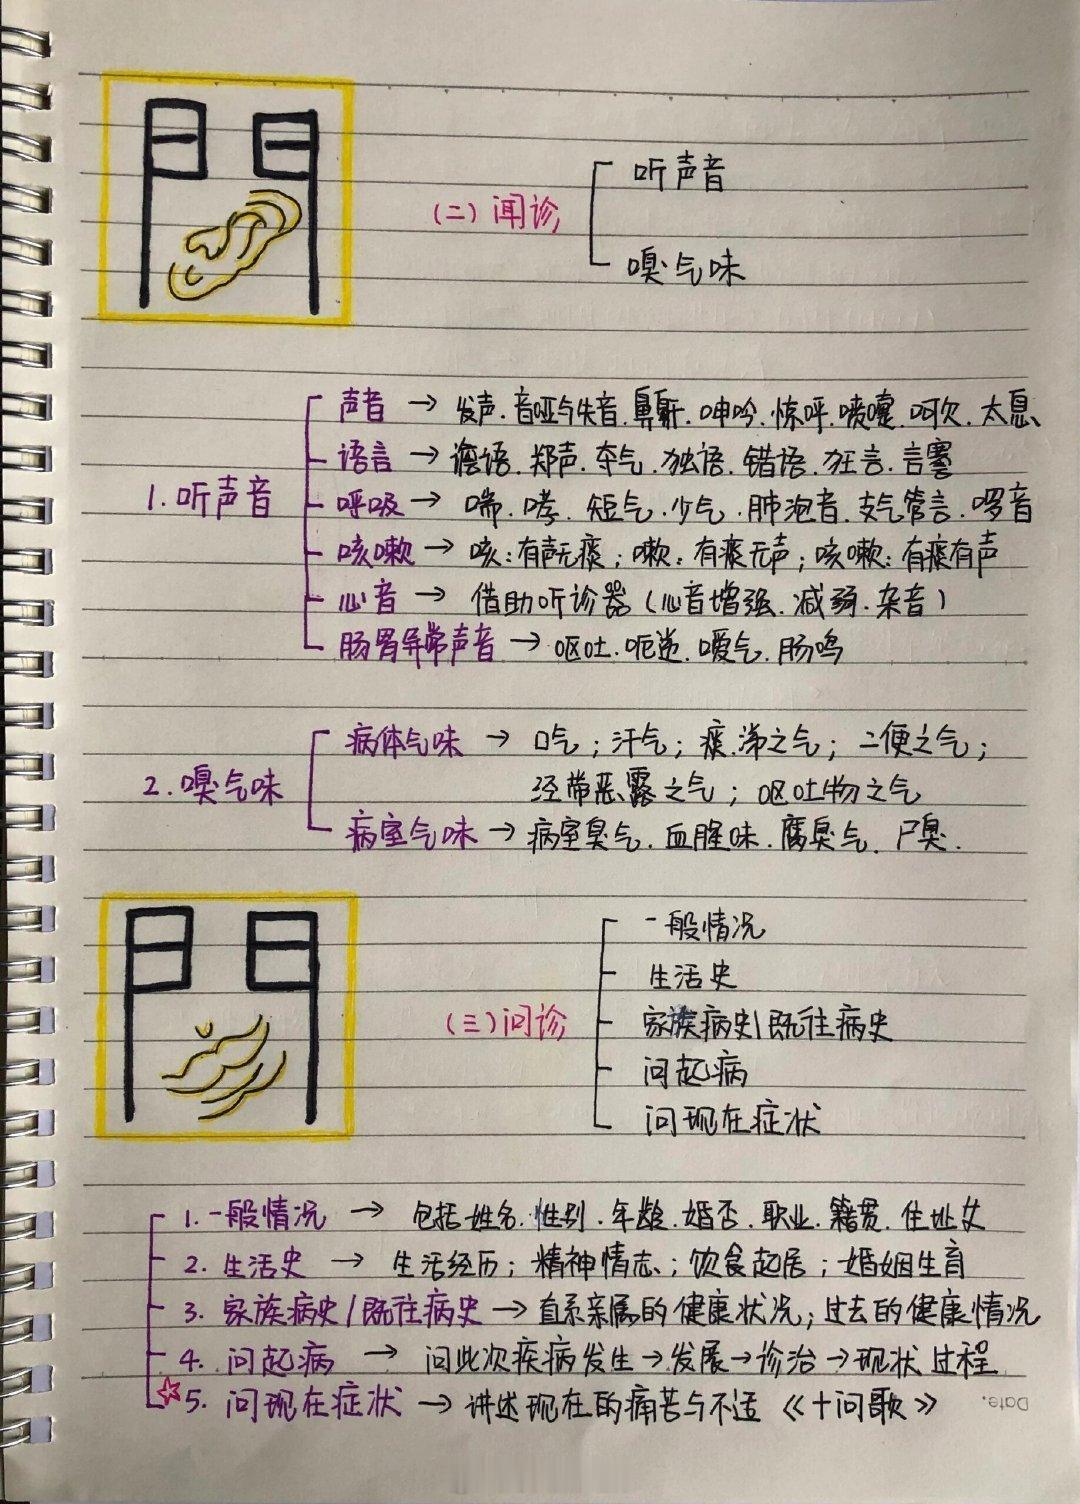 (二)闻诊
听声音
嗅气味
1.听声音
声音 → 发声.音哑与失音.鼻鼾.呻吟.惊呼.喷嚏.呵欠.太息
语言 → 谵语.郑声.夺气.独语.错语.狂言.言謇
呼吸 → 喘.哮.短气.少气.肺泡音.支气管音.啰音
咳嗽 → 咳:有声无痰;嗽:有痰无声;咳嗽:有痰有声
心音 → 借助听诊器(心音增强.减弱.杂音)
肠胃异常声音 → 呕吐.呃逆.嗳气.肠鸣
2.嗅气味
病体气味 → 口气;汗气;痰.涕之气;二便之气;
经带恶露之气;呕吐物之气
病室气味 → 病室臭气.血腥味.腐臭气.尸臭.
(三)问诊
一般情况
生活史
家族病史/既往病史
问起病
问现在症状
1.一般情况 → 包括姓名.性别.年龄.婚否.职业.籍贯.住址
2.生活史 → 生活经历;精神情志;饮食起居;婚姻生育
3.家族病史/既往病史 → 直系亲属的健康状况;过去的健康情况
4.问起病 → 问此次疾病发生→发展→诊治→现状过程
☆5.问现在症状 → 讲述现在的痛苦与不适《十问歌》
Date.